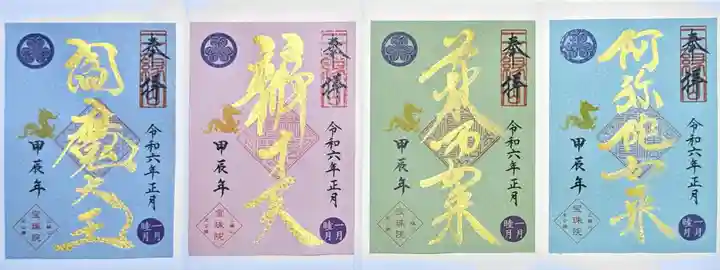 奉拝
閻魔大王
令和六年正月
甲辰年
一月
睦月
宝珠院
奉拝
辨才天
令和六年正月
甲辰年
一月
睦月
宝珠院
奉拝
令和六年正月
甲辰年
一月
睦月
宝珠院
奉拝
阿弥陀如来
令和六年正月
甲辰年
一月
睦月
宝珠院